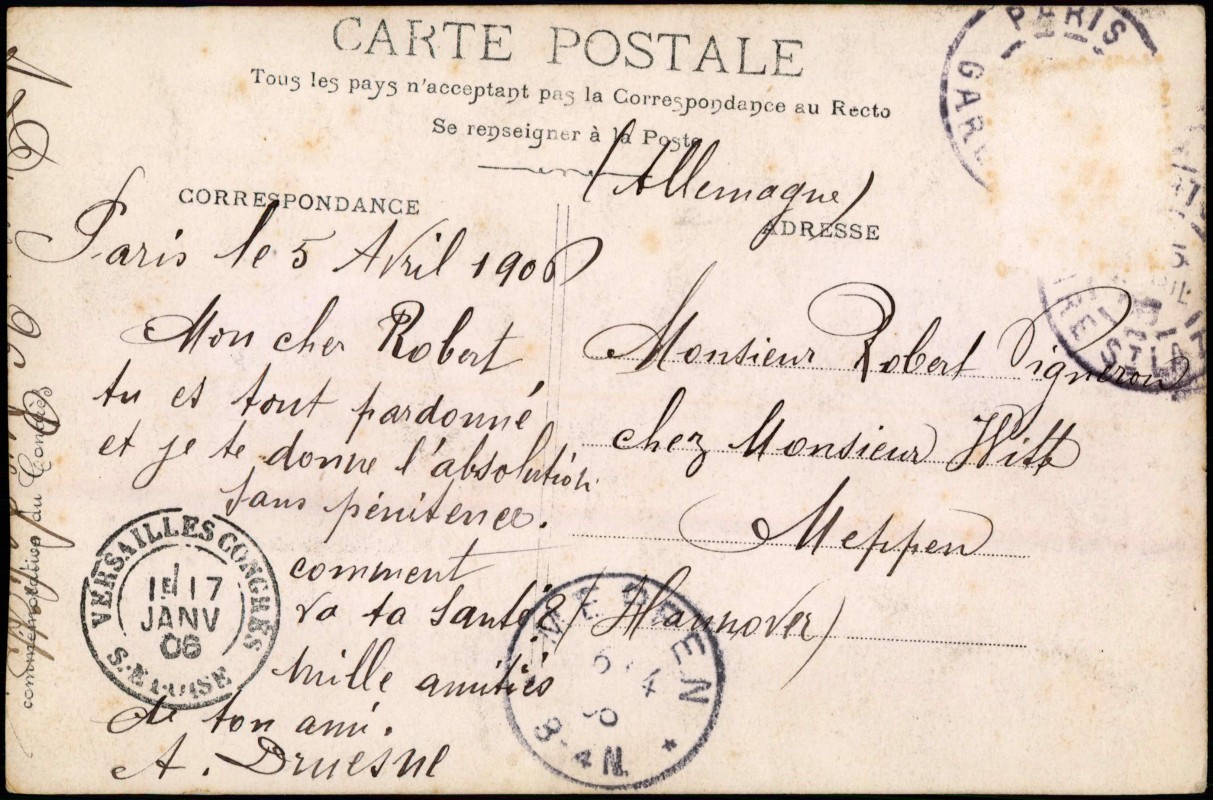 CARTE POSTALE
Tous les pays n'acceptent pas la Correspondance au Recto
Se renseigner à la Poste
CORRESPONDANCE
ADRESSE
Paris le 5 Avril 1906
Mon cher Robert
tu es tout pardonné
et je te donne l'absolution
sans pénitence.
comment
va ta santé?
Mille amitiés
de ton ami.
A. Druesne
(Allemagne)
Monsieur Robert Vigneron
chez Monsieur Witt
Meppen
(Hannover)
VERSAILLES CONGRÈS
17
JANV
06
S. ET OISE
MEPPEN
6 4
8-9 N.
PARIS
GARE
ST LAZ
commémorative du Congrès